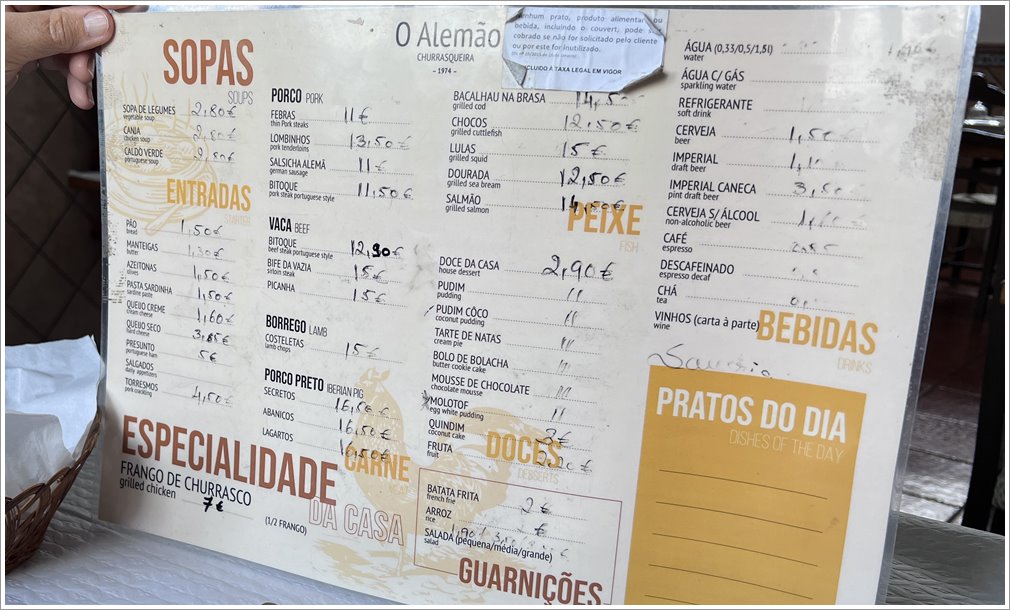 SOPAS
SOUPS
SOPA DE LEGUMES 2,80€
vegetable soup
CANJA 2,80€
chicken soup
CALDO VERDE 2,80€
portuguese soup
ENTRADAS
STARTER
PÃO 1,50€
bread
MANTEIGAS 1,30€
butter
AZEITONAS 1,50€
olives
PASTA SARDINHA 1,50€
sardine paste
QUEIJO CREME 1,60€
cream cheese
QUEIJO SECO 3,85€
hard cheese
PRESUNTO 5€
portuguese ham
SALGADOS
daily appetizers
TORRESMOS 4,50€
pork crackling
ESPECIALIDADE
DA CASA
FRANGO DE CHURRASCO
grilled chicken
7€
(1/2 FRANGO)
PORCO PORK
FEBRAS 11€
thin Pork steaks
LOMBINHOS 13,50€
pork tenderloins
SALSICHA ALEMÃ 11€
german sausage
BITOQUE 11,50€
pork steak portuguese style
VACA BEEF
BITOQUE 12,90€
beef steak portuguese style
BIFE DA VAZIA 15€
sirloin steak
PICANHA 15€
BORREGO LAMB
COSTELETAS 15€
lamb chops
PORCO PRETO IBERIAN PIG
SECRETOS 16,50€
ABANICOS 16,50€
LAGARTOS 16,50€
CARNE
O Alemão
CHURRASQUEIRA
- 1974 -
nenhum prato, produto alimentar ou
bebida, incluindo o couvert, pode ser
cobrado se não for solicitado pelo cliente
ou por este for inutilizado.
INCLUIDO A TAXA LEGAL EM VIGOR
BACALHAU NA BRASA 14,50
grilled cod
CHOCOS 12,50€
grilled cuttlefish
LULAS 15€
grilled squid
DOURADA 12,50€
grilled sea bream
SALMÃO 14,50€
grilled salmon
PEIXE
FISH
DOCE DA CASA 2,90€
house dessert
PUDIM //
pudding
PUDIM CÔCO //
coconut pudding
TARTE DE NATAS //
cream pie
BOLO DE BOLACHA //
butter cookie cake
MOUSSE DE CHOCOLATE //
chocolate mousse
MOLOTOF //
egg white pudding
QUINDIM 3€
coconut cake
FRUTA
fruit
DOCES
DESSERTS
BATATA FRITA 2€
french frie
ARROZ €
rice
SALADA (pequena/média/grande)
salad
GUARNIÇÕES
ÁGUA (0,33/0,5/1,5l)
water
ÁGUA C/ GÁS
sparkling water
REFRIGERANTE
soft drink
CERVEJA 1,50€
beer
IMPERIAL
draft beer
IMPERIAL CANECA
pint draft beer
CERVEJA S/ ÁLCOOL
non-alcoholic beer
CAFÉ
espresso
DESCAFEINADO
espresso decaf
CHÁ
tea
VINHOS (carta à parte)
wine
BEBIDAS
DRINKS
PRATOS DO DIA
DISHES OF THE DAY